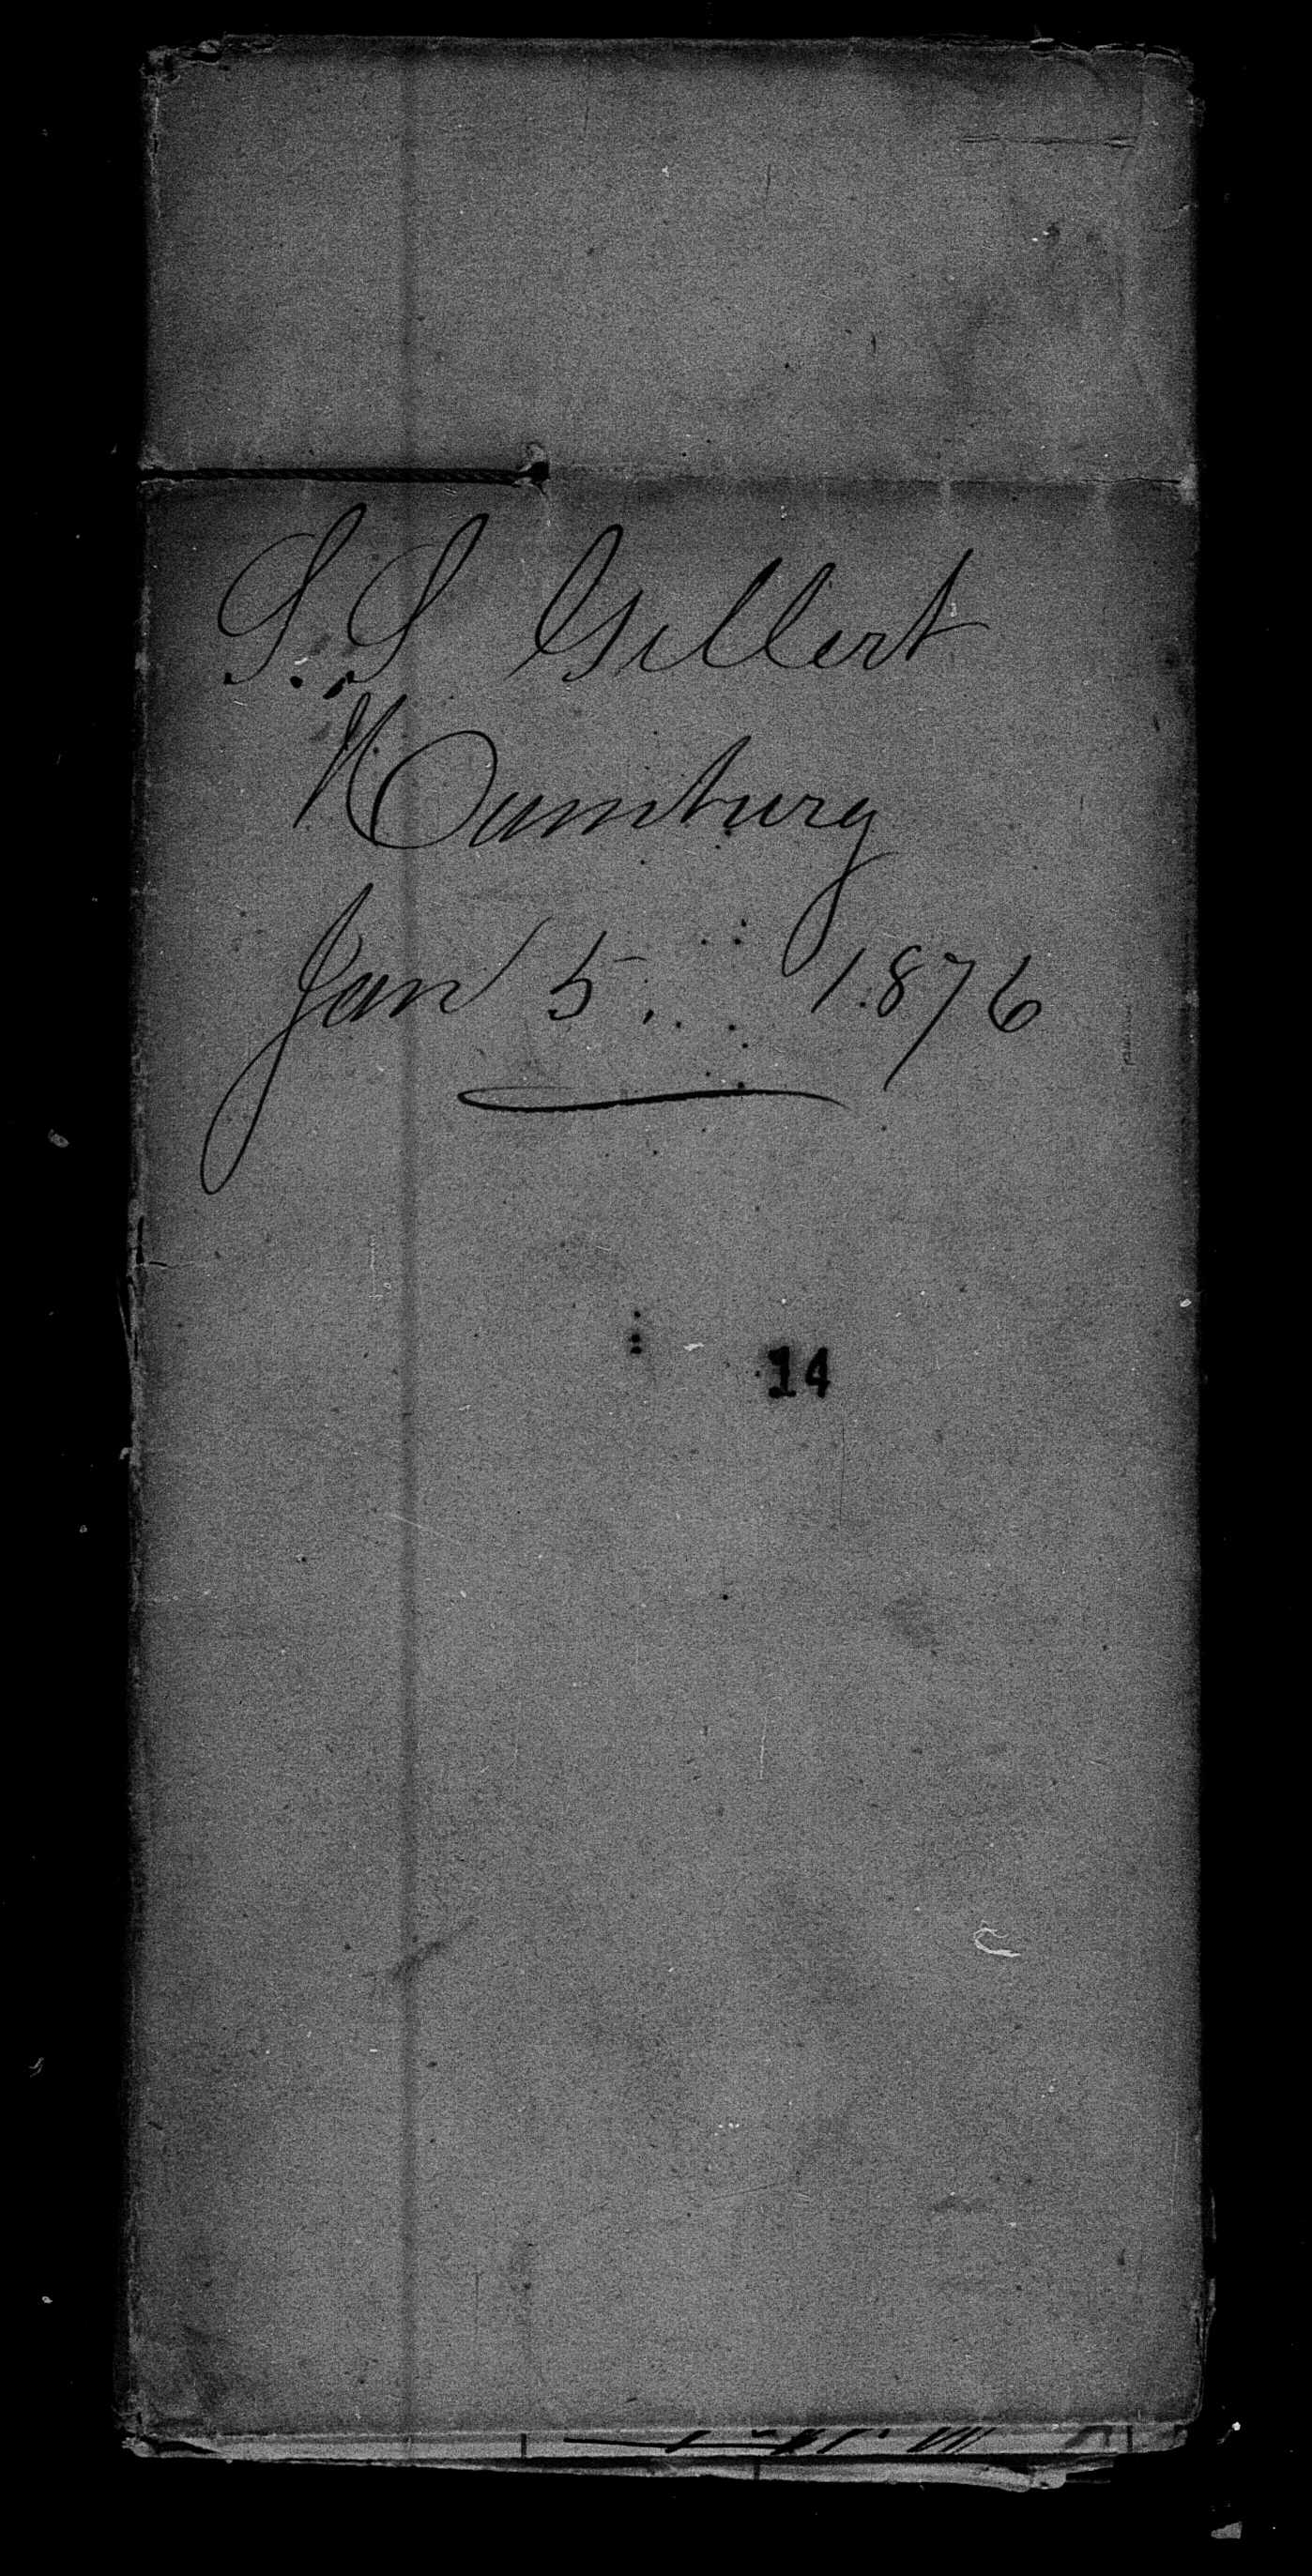 S.S. Gellert
Hamburg
Jan 5. 1876
14